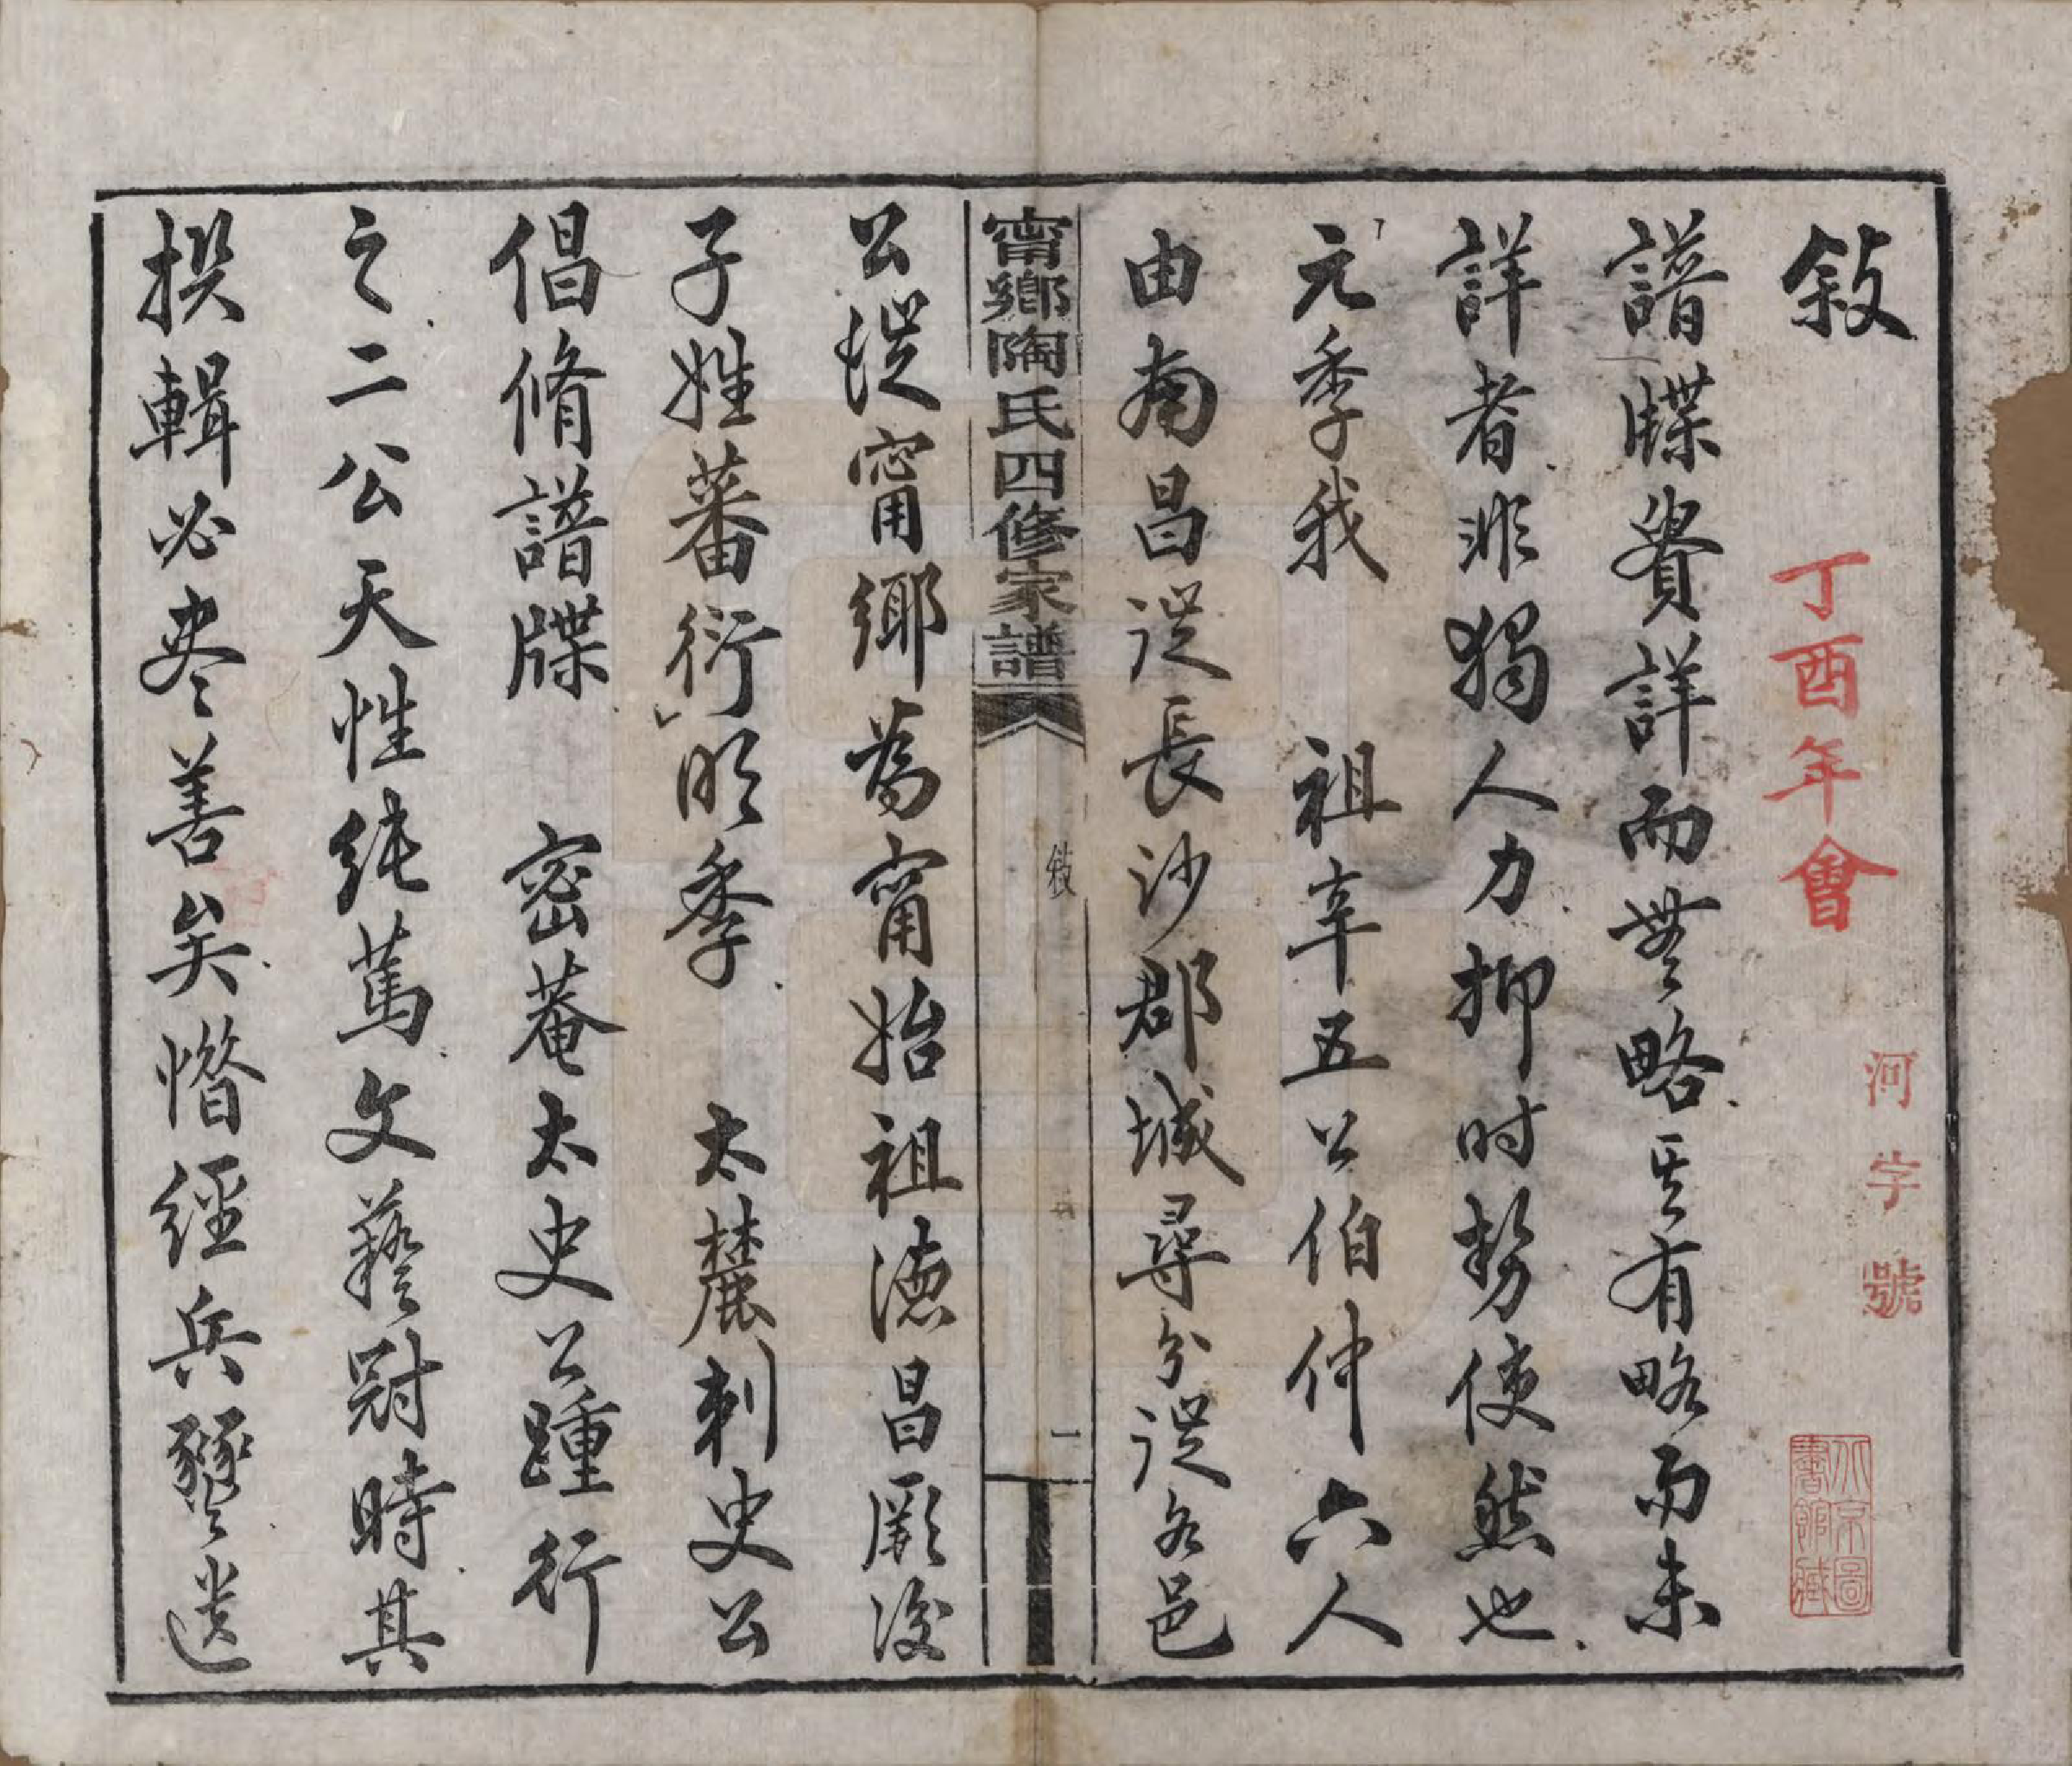 敘
丁酉年會
河字號
北京圖書館藏
譜牒貴詳而無略其有略而未
詳者非獨人力抑时勢使然也
元季我 祖辛五公伯仲六人
由南昌徙長沙郡城尋分徙各邑
甯鄉陶氏四修家譜
敘
一
公從甯鄉為甯始祖德昌厥後
子姓蕃衍明季 太麓刺史公
倡脩譜牒 密菴太史公踵行
之二公天性純篤文藝冠時其
撰輯必尽善矣憯經兵燹遺